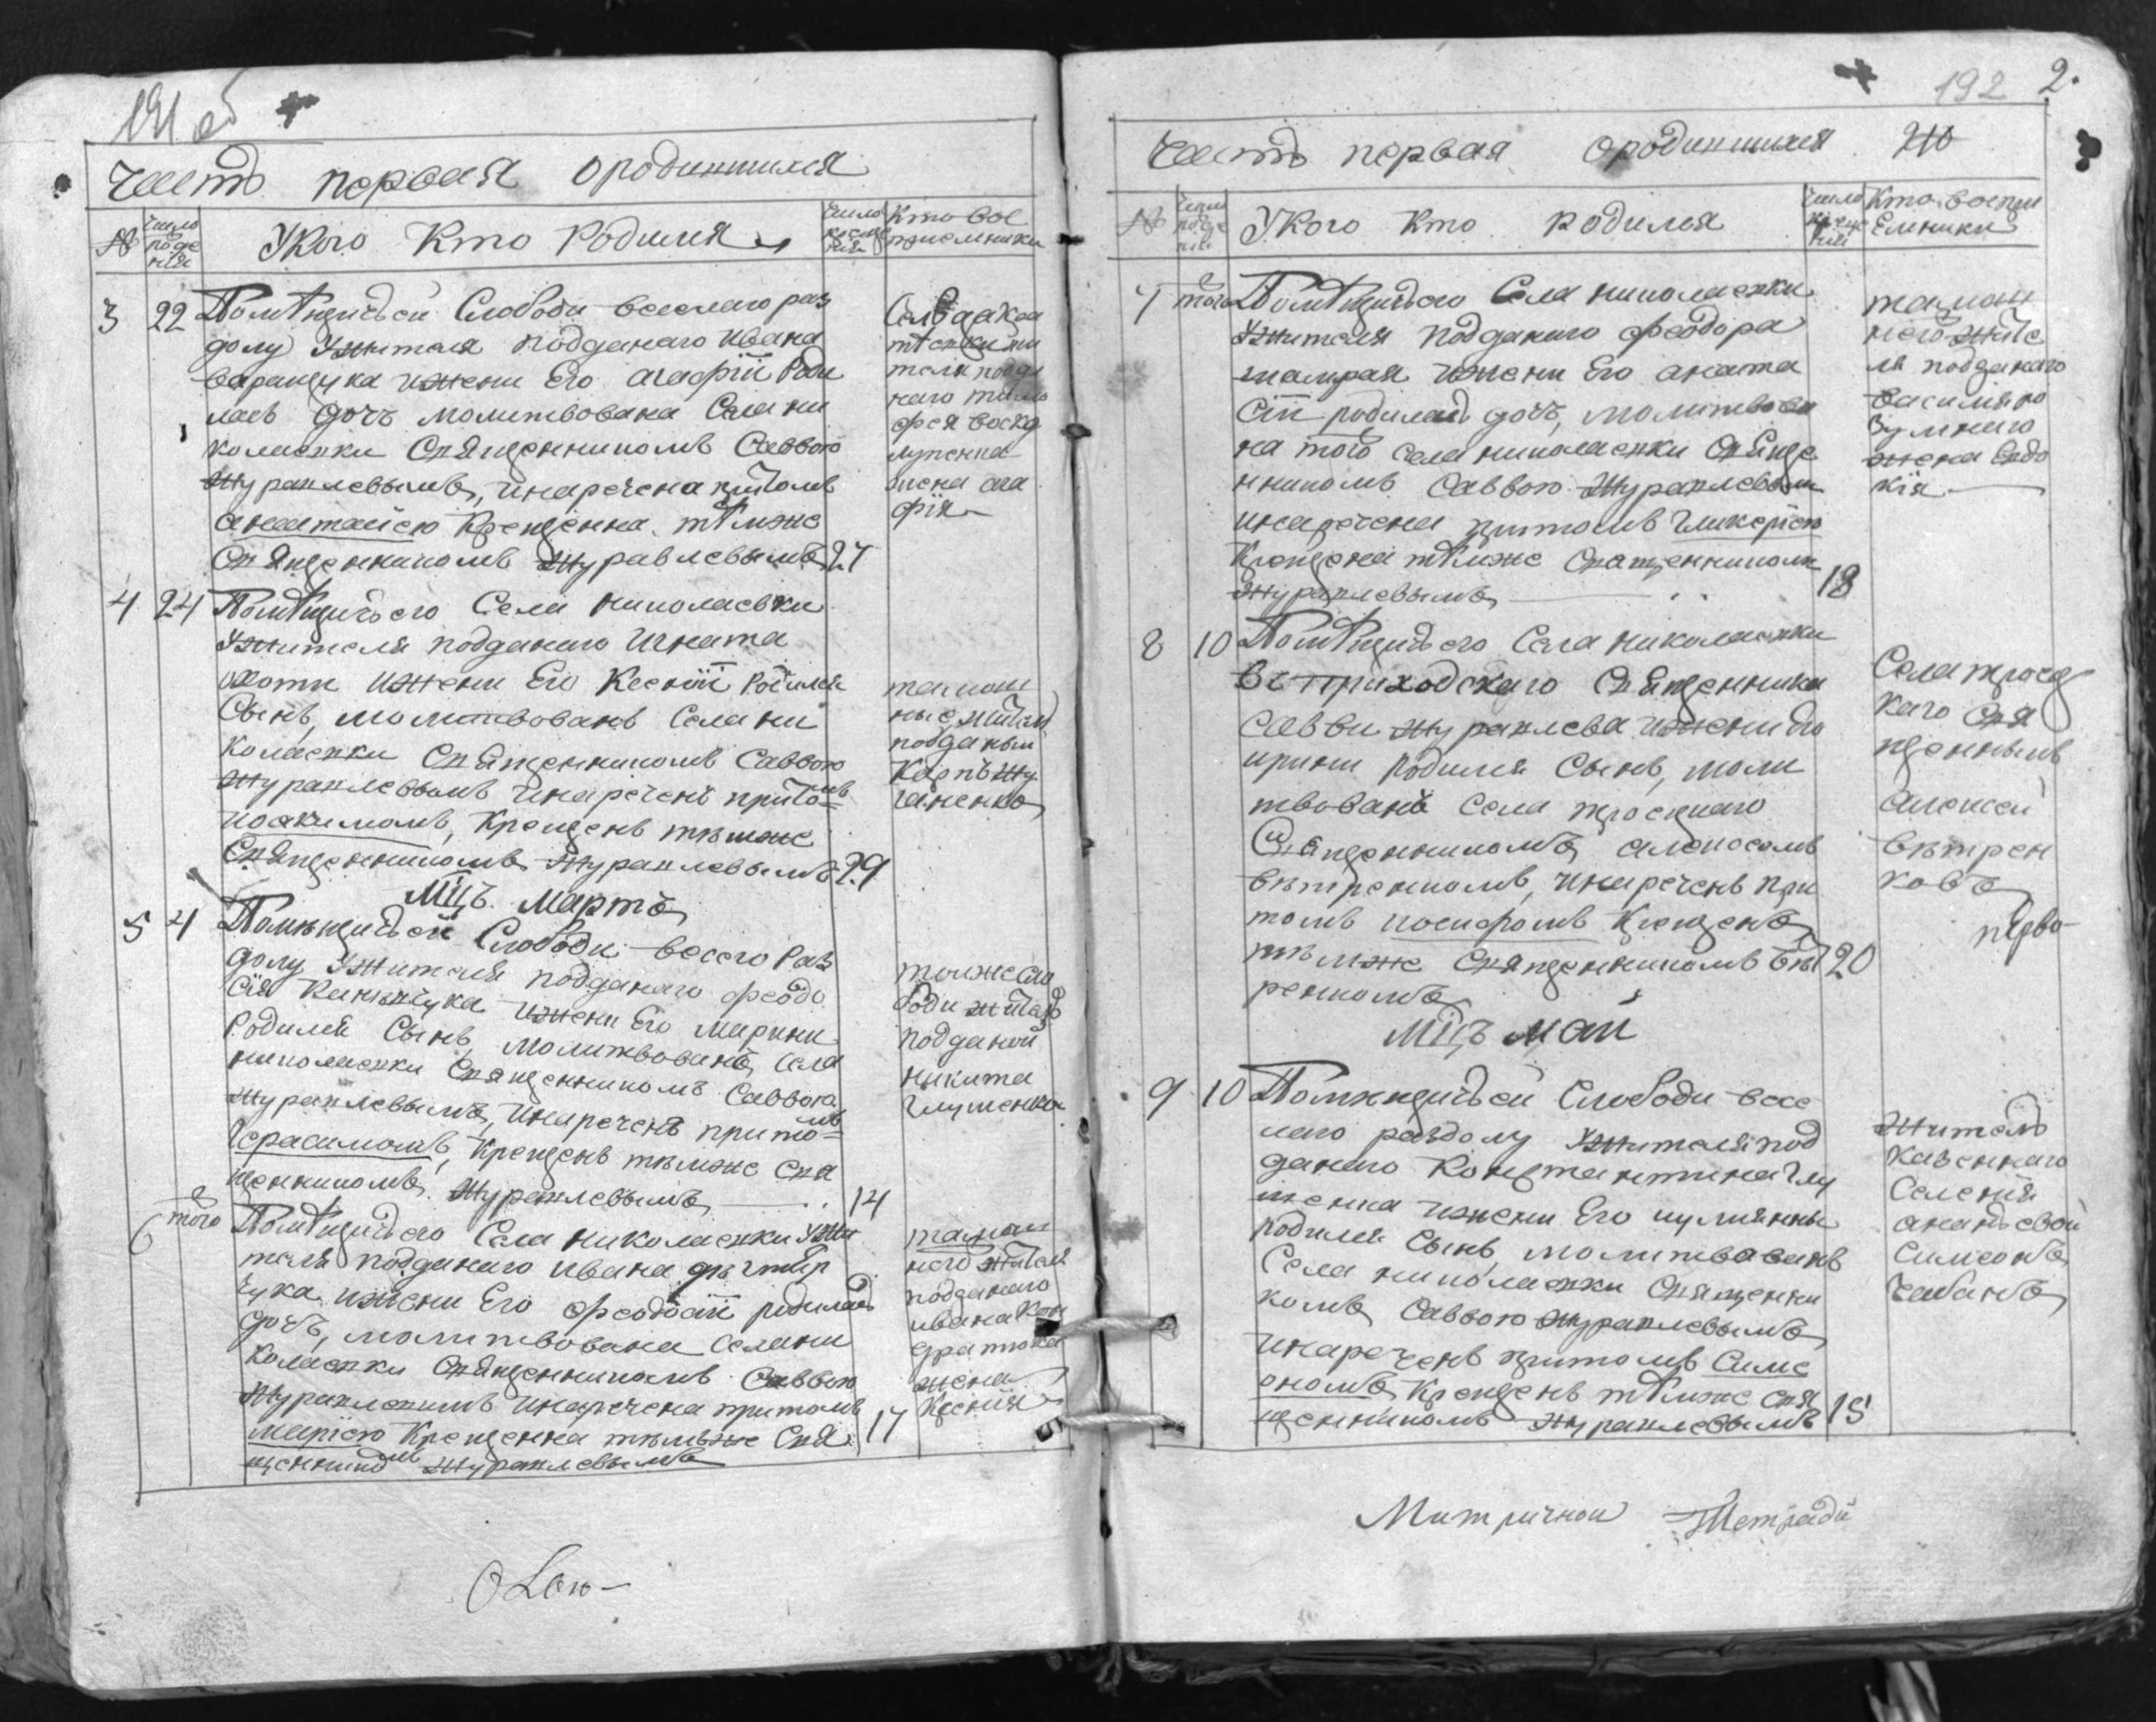 191 об
Часть первая о родившихся
№
Число рождения
У кого Кто Родился
Число крещения
Кто воспріемники
3 22 Помѣщичьей Слободи веселаго раз
долу У жителя подданаго Ивана
варащука и жени Его агафіи Роди
лась дочь молитвована Села ни
колаевки Священникомъ Саввою
Журавлевымъ, и наречена притомъ
анастасіею Крещенна тѣмже
Священникомъ Журавлевымъ 27
наго тимо
фея
жена ага
фія
4 24 Помѣщичьего Села николаевки
У жителя подданаго Игната
охоти и жени Его Ксеніи родился
Сынъ, молитвованъ Села ни
колаевки Священникомъ Саввою
Журавлевымъ и нареченъ притомъ
иоакимомъ, Крещенъ тѣмже
Священникомъ Журавлевымъ 29
тамош
ные жители
подданый
Карпъ
Мцъ. Мартъ
5 4 Помѣщичьей Слободи весего Раз
долу У жителя подданаго феодо
сія и жени Его Марини
Родился Сынъ, молитвованъ, Села
николаевки Священникомъ Саввою
Журавлевымъ, и нареченъ притомъ
Герасимомъ, Крещенъ тѣмже свя
щенникомъ Журавлевымъ 14
тоиже сло
боди житель
подданой
никита
Глущенко
6 того Помѣщичьего Села николаевки У жи
теля подданаго Ивана
и жени Его Феодосіи родилась
дочь, молитвована Села ни
колаевки Священникомъ Саввою
Журавлевимъ и наречена притомъ
маріею Крещенна тѣмъже Свя
щенникомъ Журавлевымъ 17
тамош
него жителя
подданаго
ивана Кон
дратюка
жена
Ксенія
192 2.
Часть первая о родившихся
№
Число рожденія
У кого Кто родился
Число крещенія
Кто воспри
Емники
7 того Помѣщичьего Села николаевки
У жителя подданаго феодора
шамрая и жени Его анаста
сіи родилась дочь, молитвова
на того Села николаевки Священ
нникомъ Саввою Журавлевым
и наречена притомъ Гликеріею
Крещена тѣмже Священникомъ
Журавлевымъ 18
тамош
него жите
ля подданаго
Василія ро
зумнего
жена Евдо
кія
8 10 Помѣщичьего Села николаевки
приходскаго Священника
Савви Журавлева и жени Его
ирини родился Сынъ, моли
твованъ Села
Священникомъ алексеемъ
вѣтренкомъ, и нареченъ при
томъ иосифомъ Крещенъ
тѣмже Священникомъ Вѣт 20
ренкомъ
Села
каго Свя
щенникъ
алексей
вѣтрен
ковъ
перво-
Мцъ Май
9 10 Помѣщичьей Слободи весе
лаго раздолу У жителя под
данаго Константина Глу
щенка и жени Его иулианны
родился Сынъ, молитвованъ
Села николаевки Священни
комъ Саввою Журавлевымъ
и нареченъ притомъ Симе
ономъ Крещенъ тѣмже свя
щенникомъ Журавлевымъ 15
житель
казеннаго
Селенія
ананьевой
Симеонъ
Чабанъ
Митричной Тетради